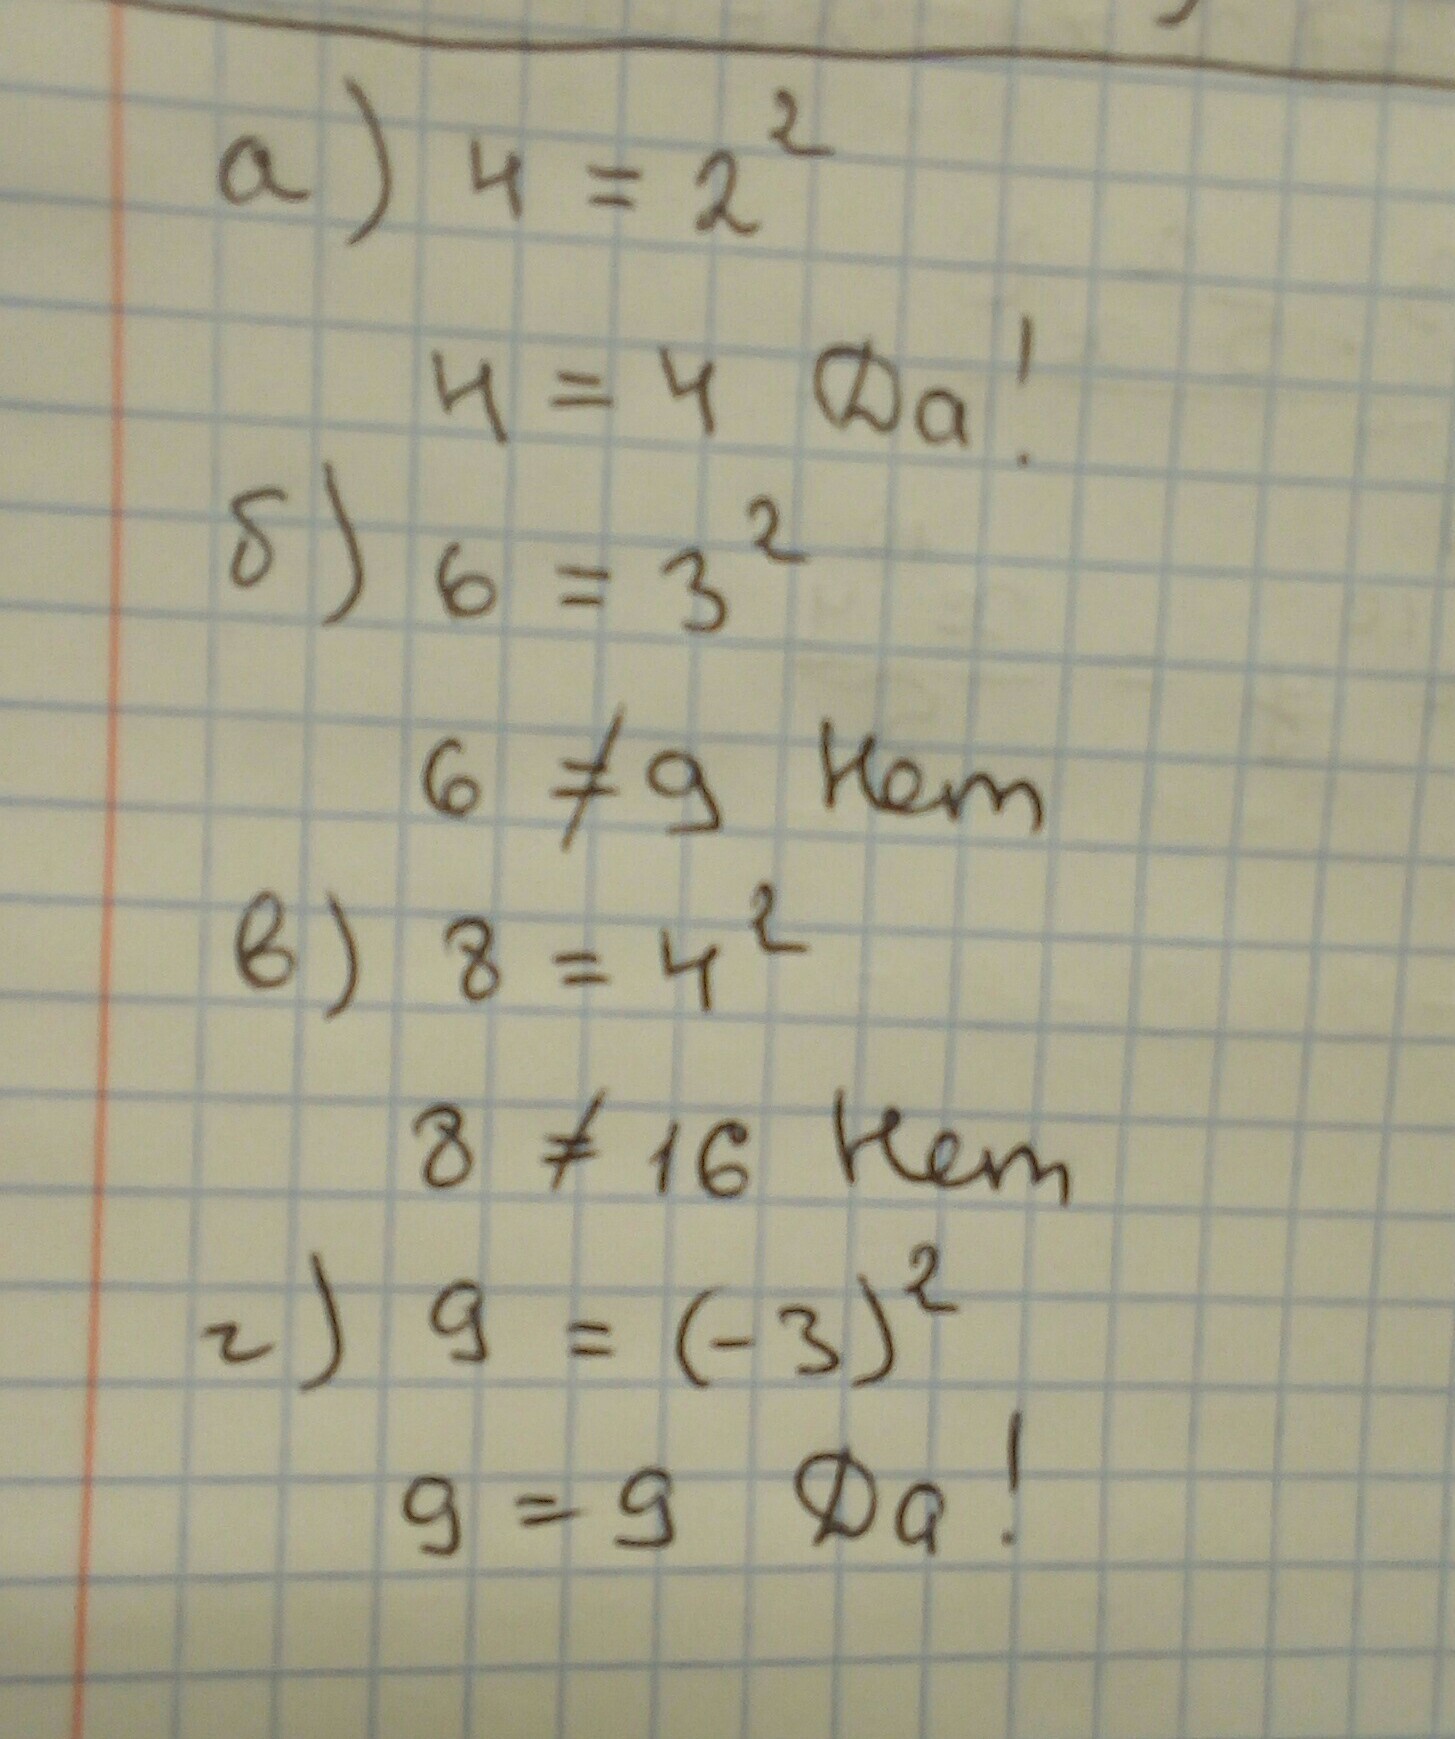 а) 4 = 2²
4 = 4 Да!
б) 6 = 3²
6 ≠ 9 Нет
в) 8 = 4²
8 ≠ 16 Нет
г) 9 = (-3)²
9 = 9 Да!